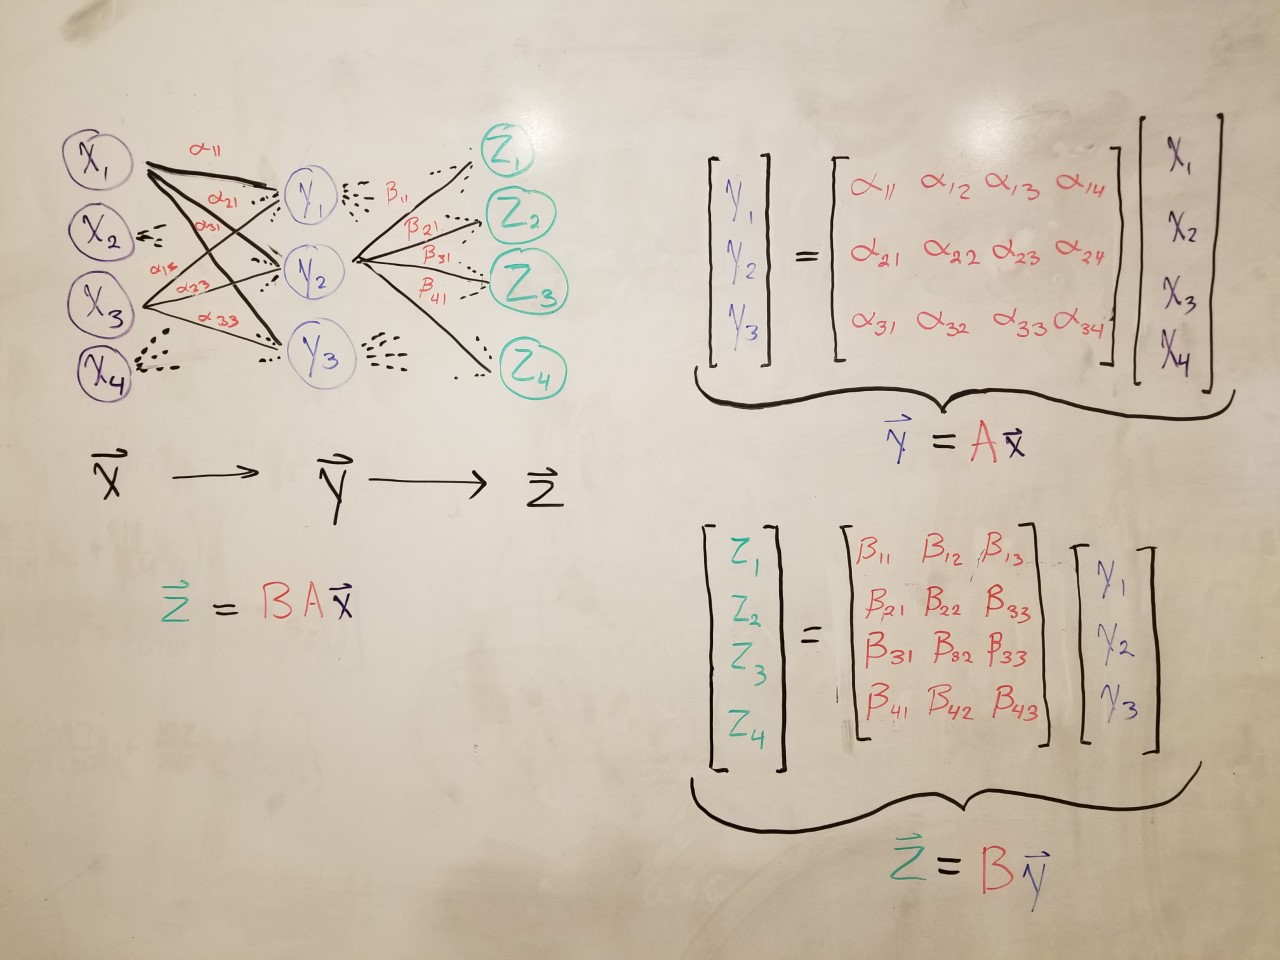 X₁ α₁₁ Y₁ β₁₁ Z₁
X₂ α₂₁ α₃₁ Y₂ β₂₁ Z₂
X₃ α₁₃ α₂₃ α₃₃ Y₃ β₃₁ β₄₁ Z₃
X₄ Z₄
x⃗ → y⃗ → z⃗
z⃗ = BAx⃗
[Y₁ Y₂ Y₃] = [α₁₁ α₁₂ α₁₃ α₁₄
α₂₁ α₂₂ α₂₃ α₂₄
α₃₁ α₃₂ α₃₃ α₃₄] [X₁ X₂ X₃ X₄]
y⃗ = Ax⃗
[Z₁ Z₂ Z₃ Z₄] = [β₁₁ β₁₂ β₁₃
β₂₁ β₂₂ β₃₃
β₃₁ β₃₂ β₃₃
β₄₁ β₄₂ β₄₃] [Y₁ Y₂ Y₃]
z⃗ = By⃗